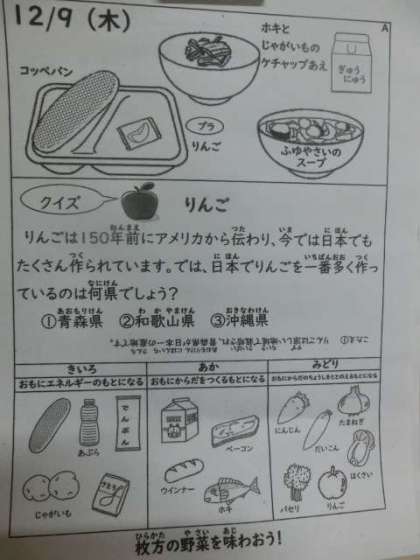 12/9 (木)
A
ホキと
じゃがいもの
ケチャップあえ
ぎゅう
にゅう
コッペパン
プラ
りんご
ふゆやさいの
スープ
クイズ
りんご
りんごは150年前にアメリカから伝わり、今では日本でも
たくさん作られています。では、日本でりんごを一番多く作っ
ているのは何県でしょう?
①青森県 ②和歌山県 ③沖縄県
きいろ
おもにエネルギーのもとになる
あか
おもにからだをつくるもとになる
みどり
おもにからだのちょうしをととのえるもとになる
あぶら
でんぷん
じゃがいも
さとう
ベーコン
ウインナー
ホキ
にんじん
たまねぎ
だいこん
はくさい
パセリ
りんご
枚方の野菜を味わおう!